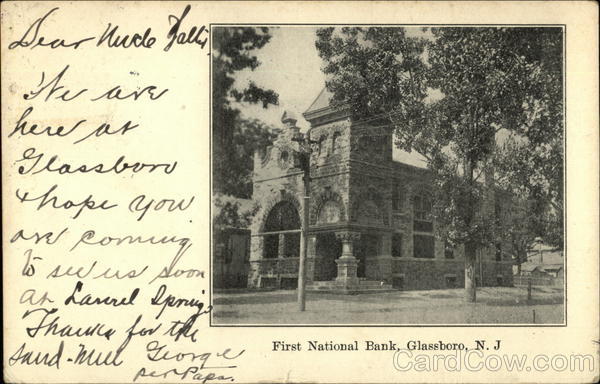 Dear Uncle
We are
here at
Glassboro
& hope you
are comeing
to see us soon
at Laurel Springs
Thanks for the
Sand-Mill George
per Papa.
First National Bank, Glassboro, N. J
CardCow.com